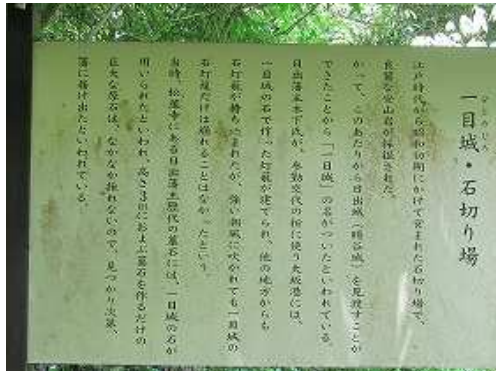 ひとめじろ
一目城・石切り場
江戸時代から昭和初期にかけて営まれた石切り場で、
良質な安山岩が採掘された。
かつて、このあたりから日出城(暘谷城)を見渡すことが
できたことから「一目城」の名がついたといわれている。
日出藩主木下氏が、参勤交代の折に使う大坂港には、
一目城の石で作った灯籠が建てられ、他の地方からも
石灯籠が持ち込まれたが、強い潮風に吹かれても一目城の
石灯籠だけは崩れることはなかったという。
当時、松屋寺にある日出藩主歴代の墓石には、一目城の石が
用いられたといわれ、高さ3mにおよぶ墓石を作るだけの
巨大な原石は、なかなか採れないので、見つかり次第、
藩に届け出たといわれている。